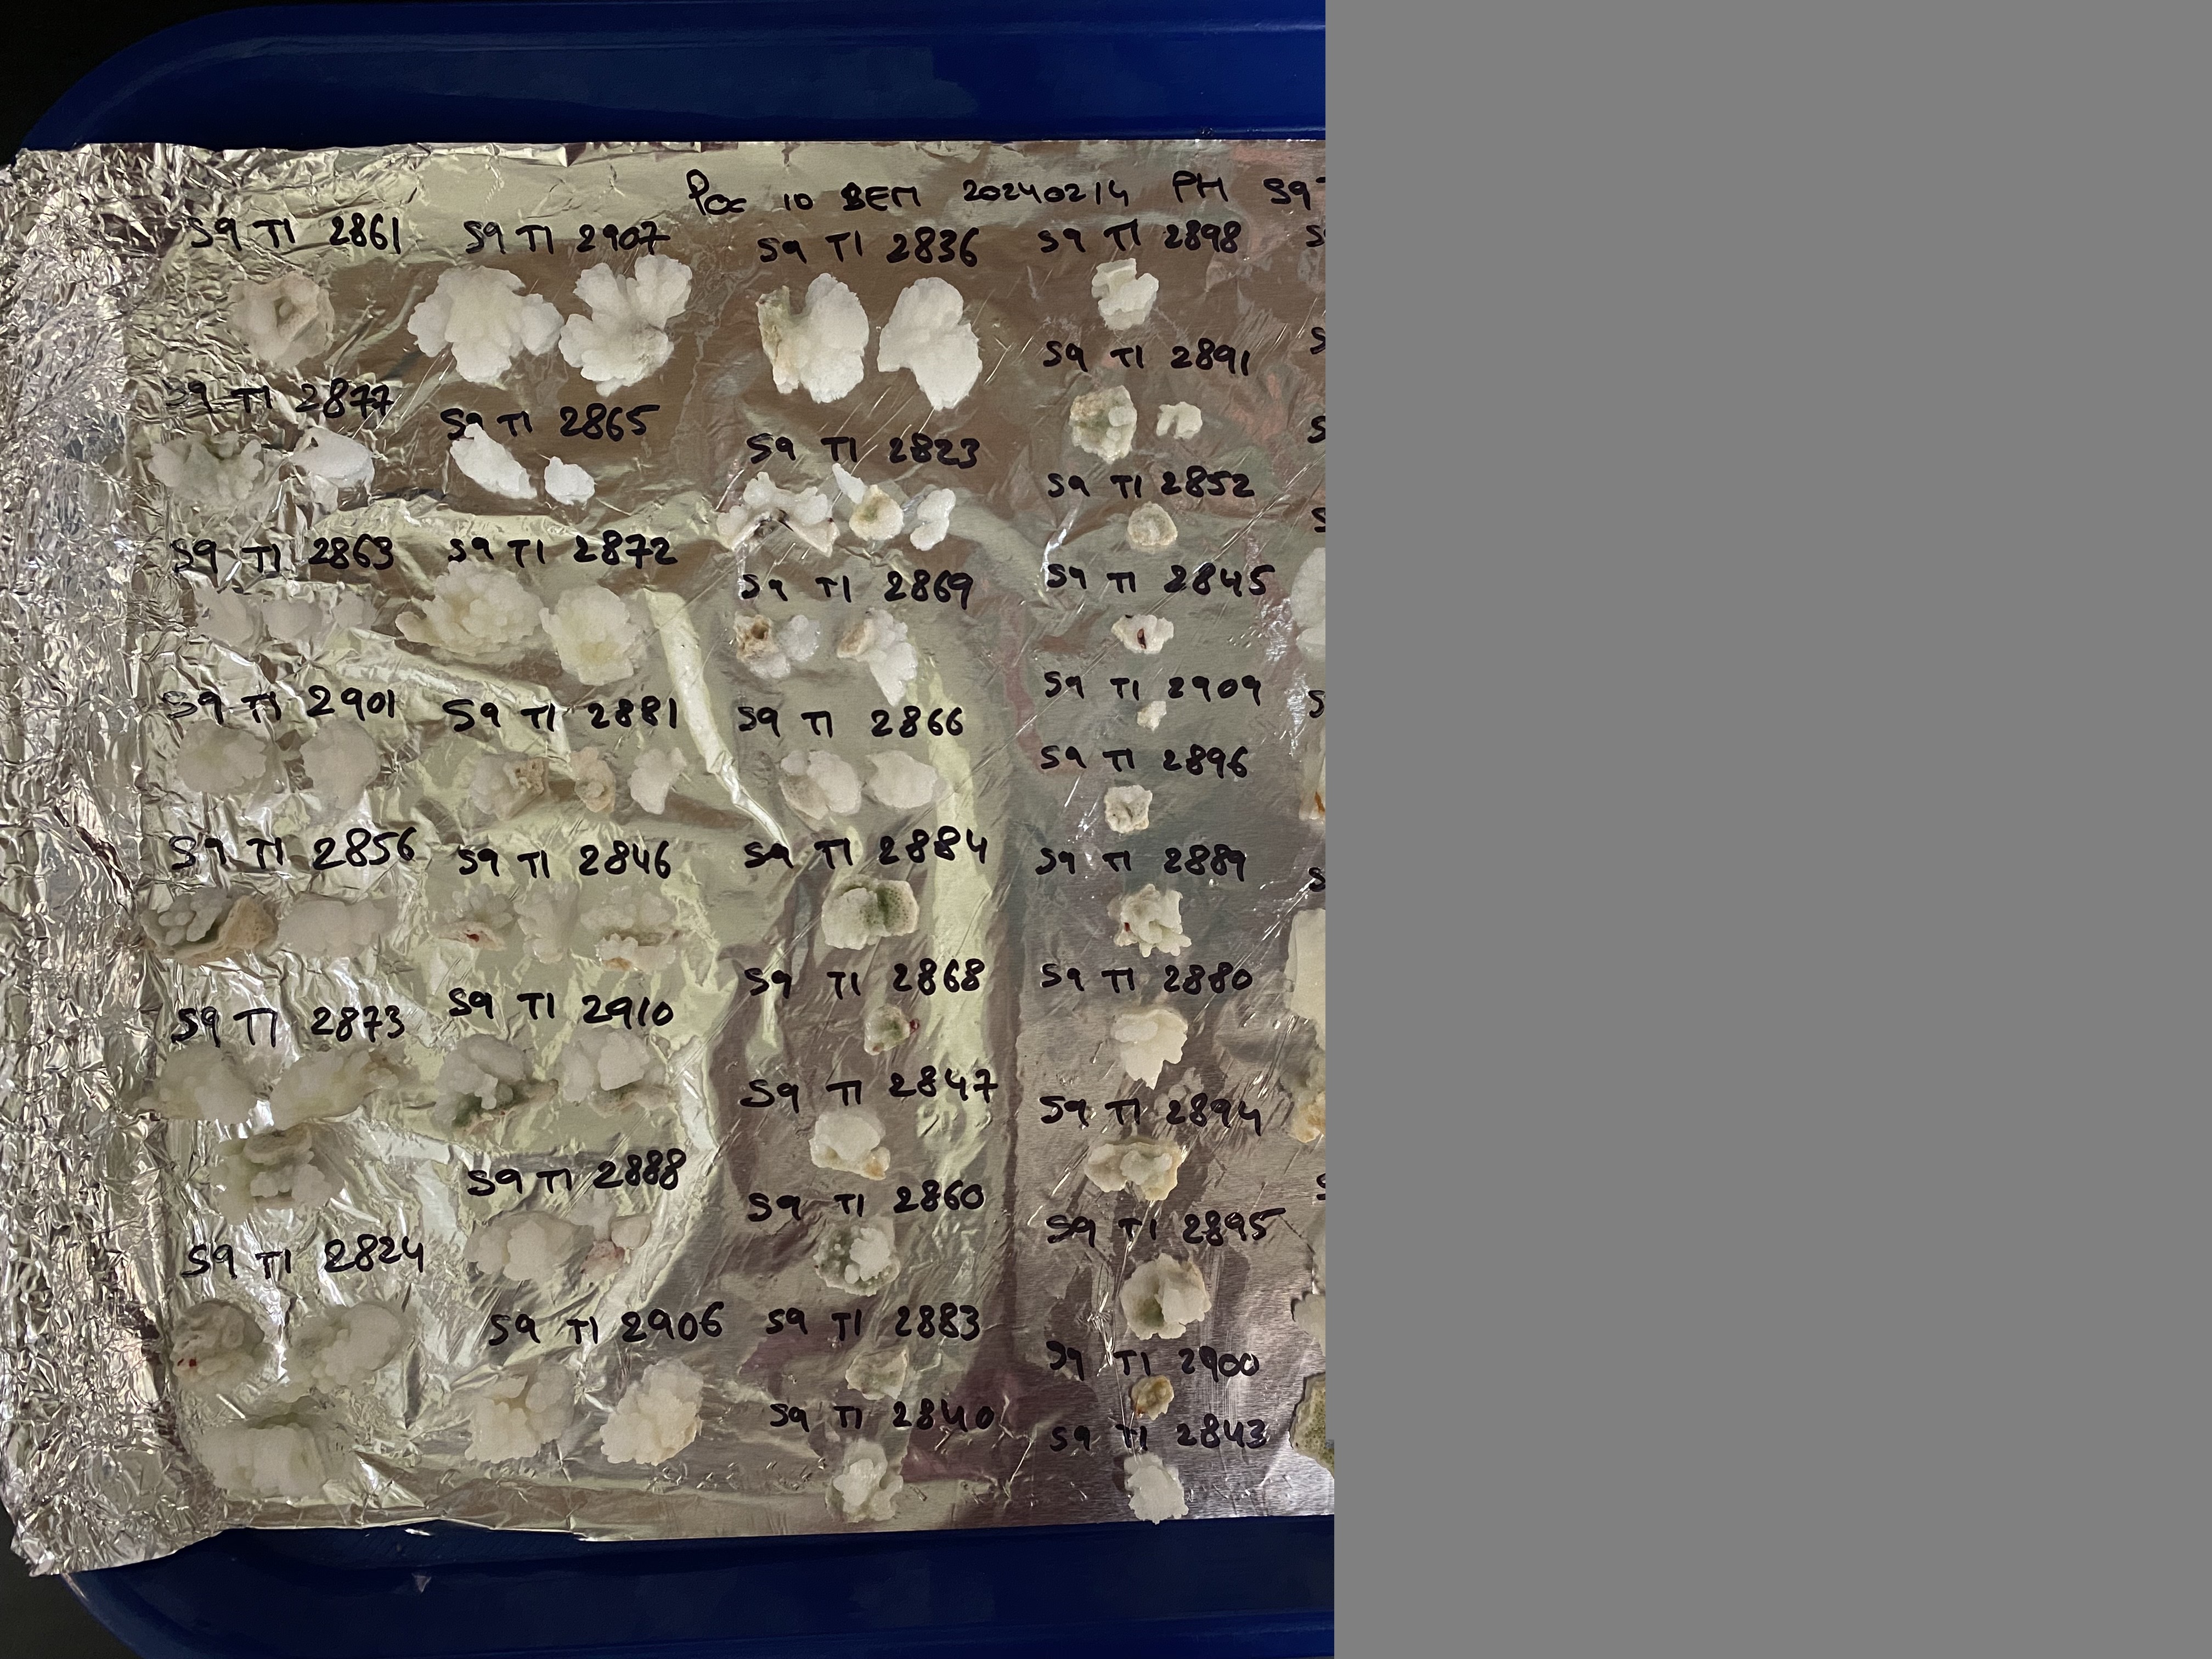 Poc 10 BEM 20240214 PH S9
S9 T1 2861
S9 T1 2877
S9 T1 2863
S9 T1 2901
S9 T1 2856
S9 T1 2873
S9 T1 2824
S9 T1 2907
S9 T1 2865
S9 T1 2872
S9 T1 2881
S9 T1 2846
S9 T1 2910
S9 T1 2888
S9 T1 2906
S9 T1 2836
S9 T1 2823
S9 T1 2869
S9 T1 2866
S9 T1 2884
S9 T1 2868
S9 T1 2847
S9 T1 2860
S9 T1 2883
S9 T1 2840
S9 T1 2898
S9 T1 2891
S9 T1 2852
S9 T1 2845
S9 T1 2909
S9 T1 2896
S9 T1 2889
S9 T1 2880
S9 T1 2894
S9 T1 2895
S9 T1 2900
S9 T1 2843